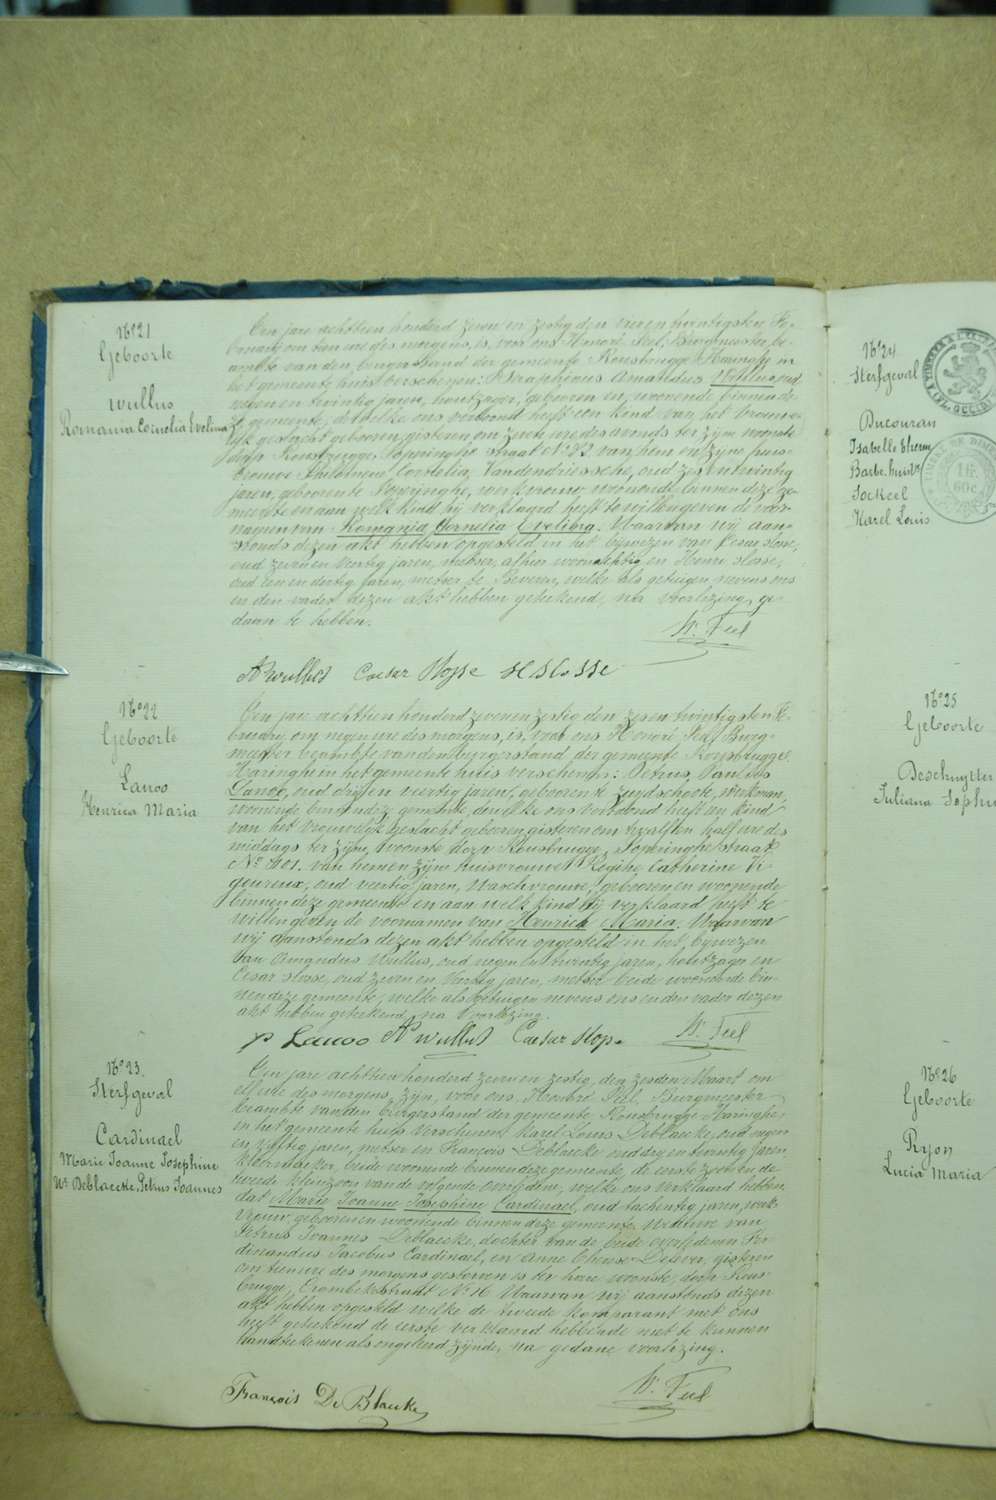 N° 21
Geboorte
Wullus
Romania Cornelia Evelina
Den jare achttien honderd zeven en zestig den vier en twintigsten Fe-
bruary om tien ure des morgens, is, voor ons Honoré Feel, Burgmeester be-
ambte van den burgerstand der gemeente Rousbrugge-Haringhe in
het gemeente huis verschenen: Seraphinus Amandus Wullus, oud
negen en twintig jaren, houtzager, geboren en woonende binnen de-
ze gemeente, dewelke ons vertoond heeft een kind van het vrouwe-
lijk geslacht geboren gisteren om zeven ure des avonds ter zijne woonste
dorp Rousbrugge, Poperinghe straat N° 83. van hem en zijne huis-
vrouwe Cordelia Vandendriessche, oud zes en twintig
jaren, geboren te Poperinghe, werkvrouw woonende binnen deze ge-
meente en aan welk kind hij verklaard heeft te willen geven de voor-
namen van Romania Cornelia Evelina. Waarvan wij aan-
stonds dezen akt hebben opgesteld in het bijwezen van Cesar Slosse,
oud zeven en veertig jaren, metser, alhier woonachtig en Henri Slosse,
oud een en dertig jaren, metser te Beveren, welke als getuigen nevens ons
en den vader dezen akt hebben geteekend, na voorlezing ge-
daan te hebben.
H. Feel
A Wullus Caesar Slosse H Slosse
N° 22
Geboorte
Lanoo
Henrica Maria
Den jare achttien honderd zeven en zestig den zes en twintigsten Fe-
bruary om negen ure des morgens, is, voor ons Honoré Feel, Burg-
meester beambte van den burgerstand der gemeente Rousbrugge-
Haringhe in het gemeente huis verschenen: Petrus
Lanoo, oud drij en veertig jaren, geboren te Zuydschoote, werkman,
woonende binnen deze gemeente, dewelke ons vertoond heeft een kind
van het vrouwelijk geslacht geboren gisteren om twaalf en half ure des
middags ter zijne woonste dorp Rousbrugge, Poperinghe straat
N° 101. van hem en zijne huisvrouwe Regine Catherine Vi-
geureux, oud veertig jaren, waschvrouwe, geboren en woonende
binnen deze gemeente en aan welk kind hij verklaard heeft te
willen geven de voornamen van Henrica Maria. Waarvan
wij aanstonds dezen akt hebben opgesteld in het bijwezen
van Amandus Wullus, oud negen en twintig jaren, houtzager en
Cesar Slosse, oud zeven en veertig jaren, metser beide woonende bin-
nen deze gemeente, welke als getuigen nevens ons en den vader dezen
akt hebben geteekend, na voorlezing.
P Lanoo A Wullus Caesar Slosse H. Feel
N° 23.
Sterfgeval
Cardinael
Marie Joanne Josephine
We Deblaecke, Petrus Joannes
Den jare achttien honderd zeven en zestig, den zesden Maart om
elf ure des morgens, zijn, voor ons, Honoré Feel, Burgmeester
beambte van den burgerstand der gemeente Rousbrugge-Haringhe,
in het gemeente huis verschenen, Karel Louis Deblaecke, oud negen
en vijftig jaren, metser en François Deblaecke oud dry en twintig jaren,
kleermaker, beide woonende binnen deze gemeente, de eerste zoon en de
tweede kleinzoon van de volgende overledene, welke ons verklaard hebben
dat Marie Joanne Josephine Cardinael, oud tachentig jaren, werk-
vrouw, geboren en woonende binnen deze gemeente, weduwe van
Petrus Joannes Deblaecke, dochter van de beide overledenen Fer-
dinandus Jacobus Cardinael, en Anne Therese Dever, gisteren
om tien ure des morgens gestorven is ter hare woonste, dorp Rous-
brugge, Crombekestraat N° 16. Waarvan wij aanstonds dezen
akt hebben opgesteld welke de tweede komparant met ons
heeft geteekend de eerste verklaard hebbende niet te kunnen
handteekenen als ongeleerd zijnde, na gedane voorlezing.
H. Feel
François De Blaecke
N° 24
Sterfgeval
Ducouran
Isabelle Therese
Barbe. huisvr
Jockeel
Karel Louis
N° 25
Geboorte
Deschuytter
Juliana Sophie
N° 26
Geboorte
Ryon
Lucia Maria